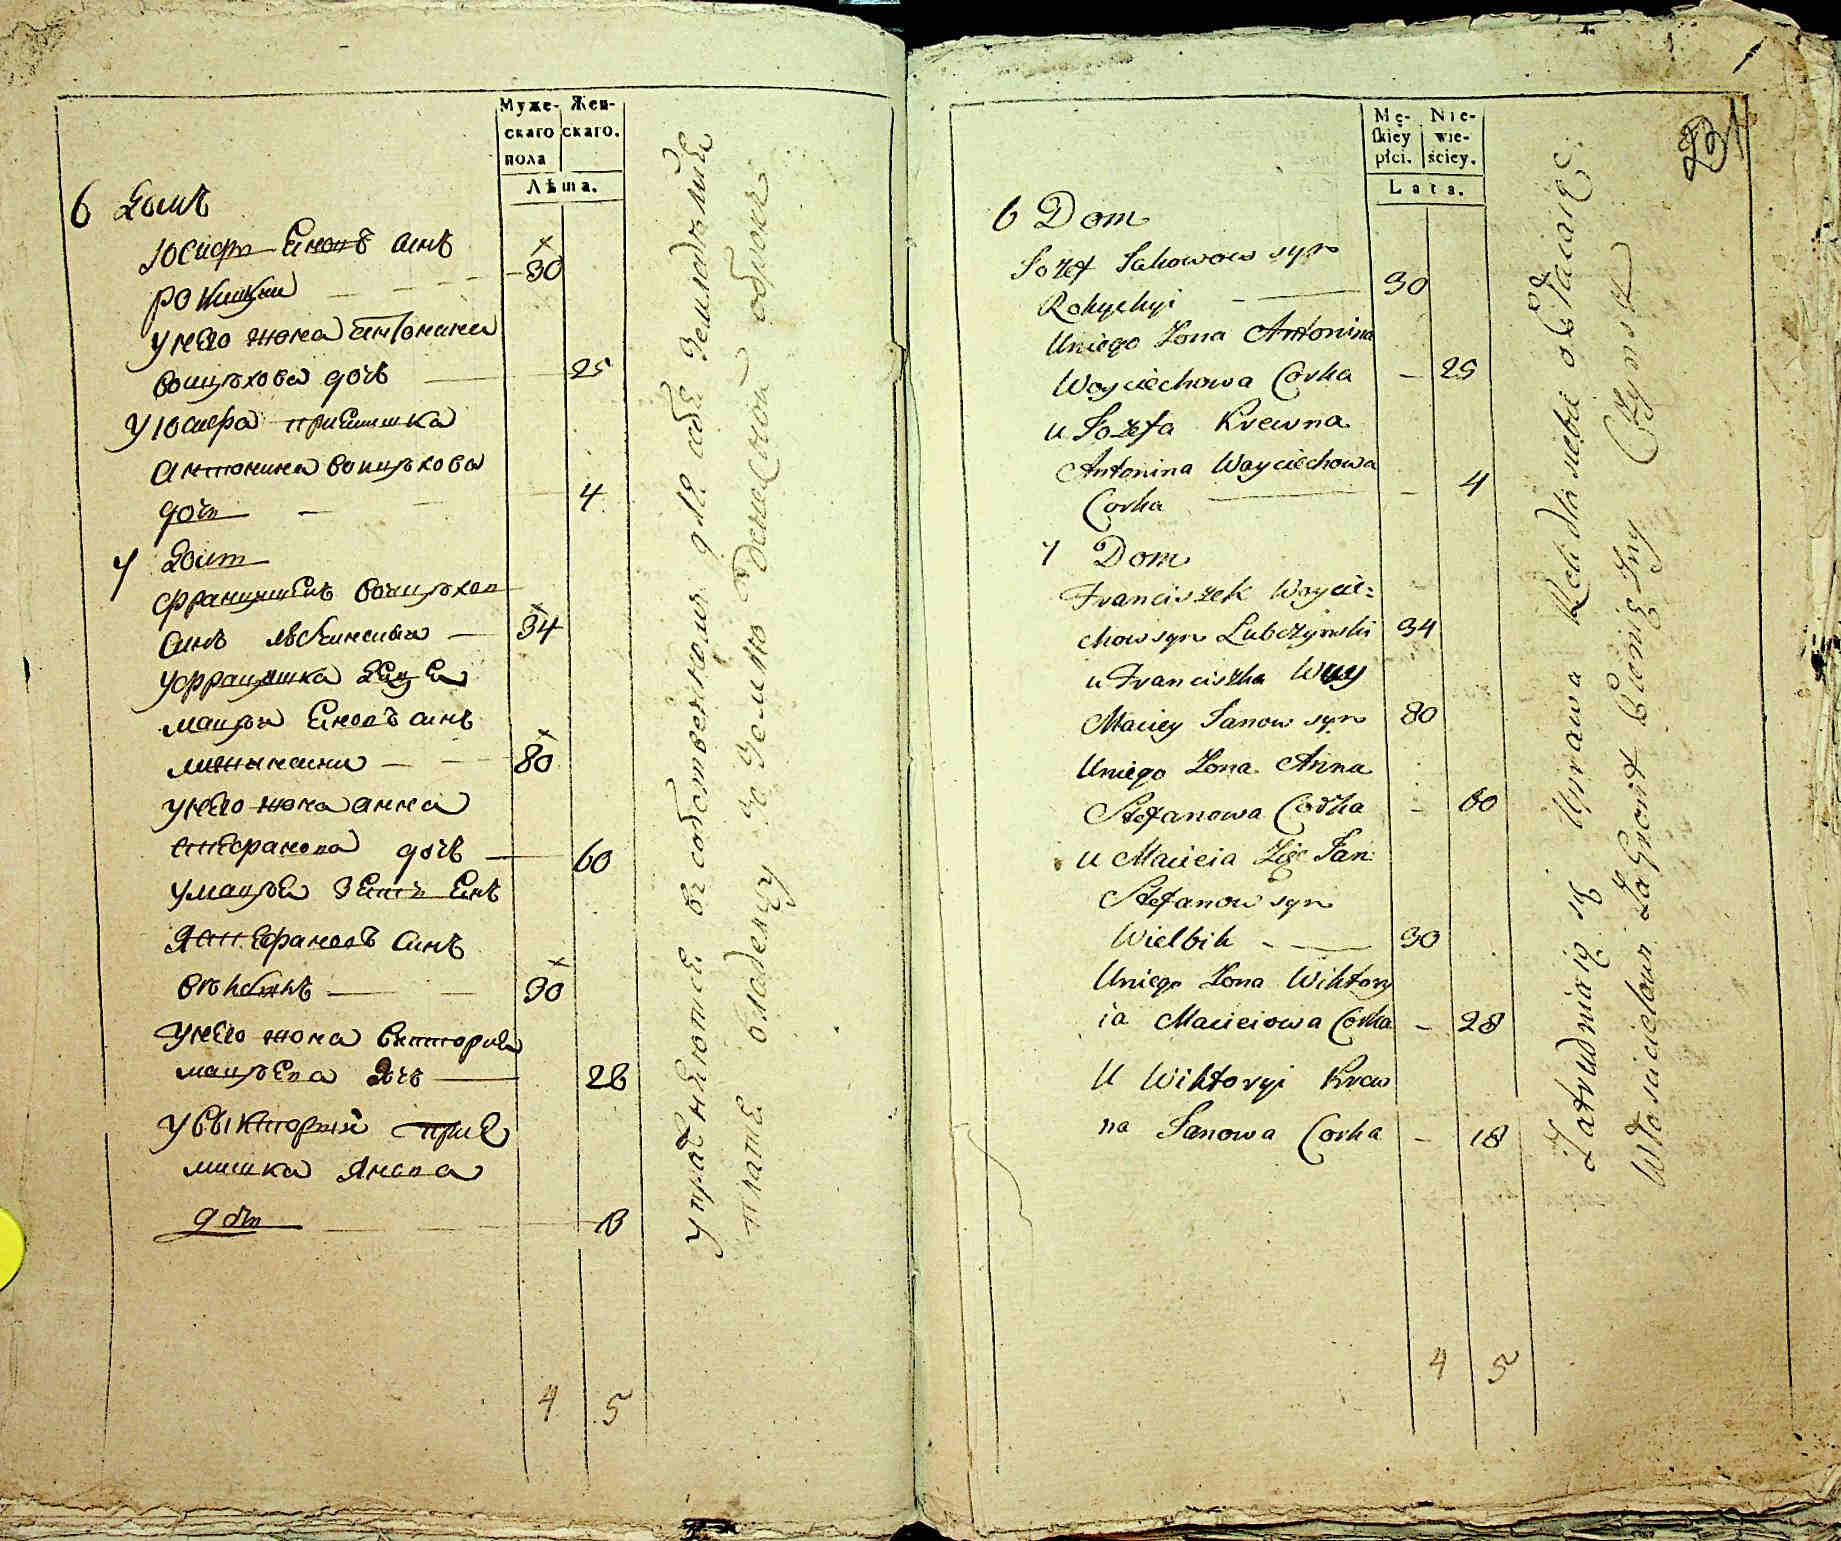 Муже-
скаго
пола
Жен-
скаго.
Лѣта.
6 Домъ
Юсиφъ Екопъ синъ
рокицки — 30
у него жона антонина
воицѣхова дочь — 25
у Юсиφа приемишка
Антонина воицѣхова
дочъ — 4
7 Домъ
Францишекъ воицѣхоп
синъ — 34
у францишка
мацѣи синъ
— 80
у него жона анна
стефанова дочь — 60
у мацѣя зеть Енъ
стефановъ синъ
— 30
у него жона виктория
мацѣева дочъ — 28
у виктории прие
мишка Янова
дочъ — 18
4 5
упражняются въ собственномъ для себя земледѣлии
платя владельцу за землю денежной оброкъ
231
Mę-
skiey
płci.
Nie-
wie-
ściey.
Lata.
6 Dom
Jozef Jakowow syn
Rokychyi — 30
Uniego Zona Antonina
Woyciechowa Corka — 25
u Jozefa Krewna
Antonina Woyciechowa — 4
Corka
7 Dom
Franciszek Woycie=
chow syn Lubczynski 34
u Franciszka Wuy
Maciey Janow syn 80
Uniego Zona Anna
Stefanowa Corka — 60
u Macieia Zięc Jan
Stefanow syn
Wielbik — 30
Uniego Zona Wiktory
ia Macieiowa Corka — 28
U Wiktoryi Krew
na Janowa Corka — 18
4 5
Zatrudniaią się Uprawą Roli dla siebie opłaciaiąc
Włascicielowi za Grount Pienięzny Czynszt